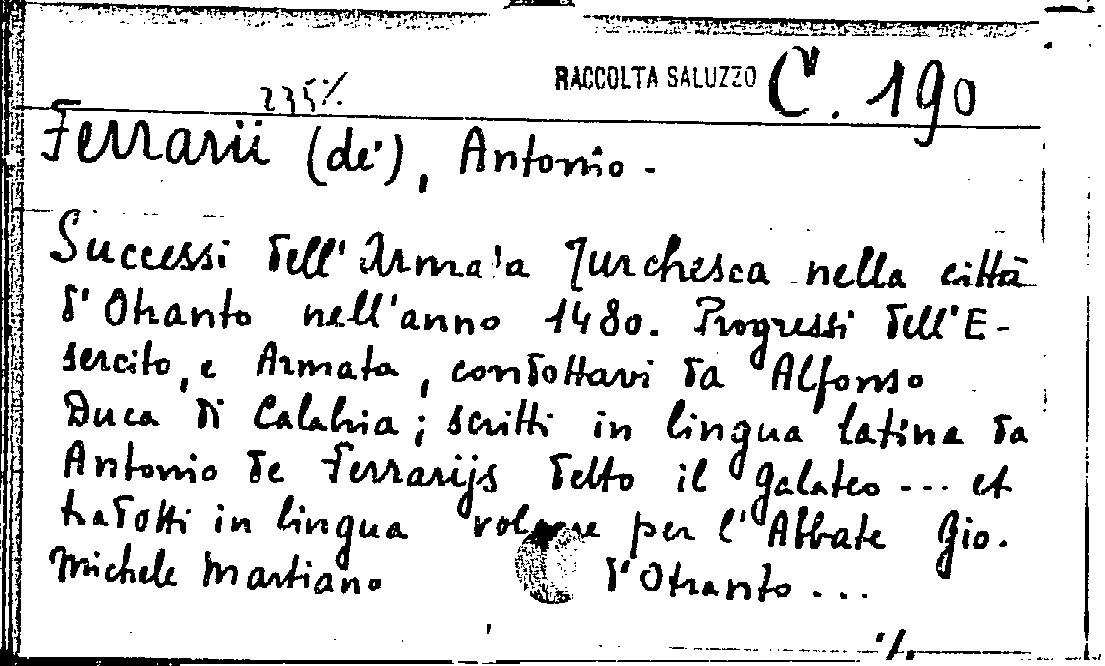 RACCOLTA SALUZZO C. 190
235%
Ferrarii (de'), Antonio.
Successi dell'Armata Turchesca nella città
d'Otranto nell'anno 1480. Progressi dell'E-
sercito, e Armata, condottavi da Alfonso
Duca di Calabria; scritti in lingua latina da
Antonio de Ferrarijs detto il Galateo ... et
tradotti in lingua volgare per l'Abbate Gio.
Michele Martiano d'Otranto ...
./.